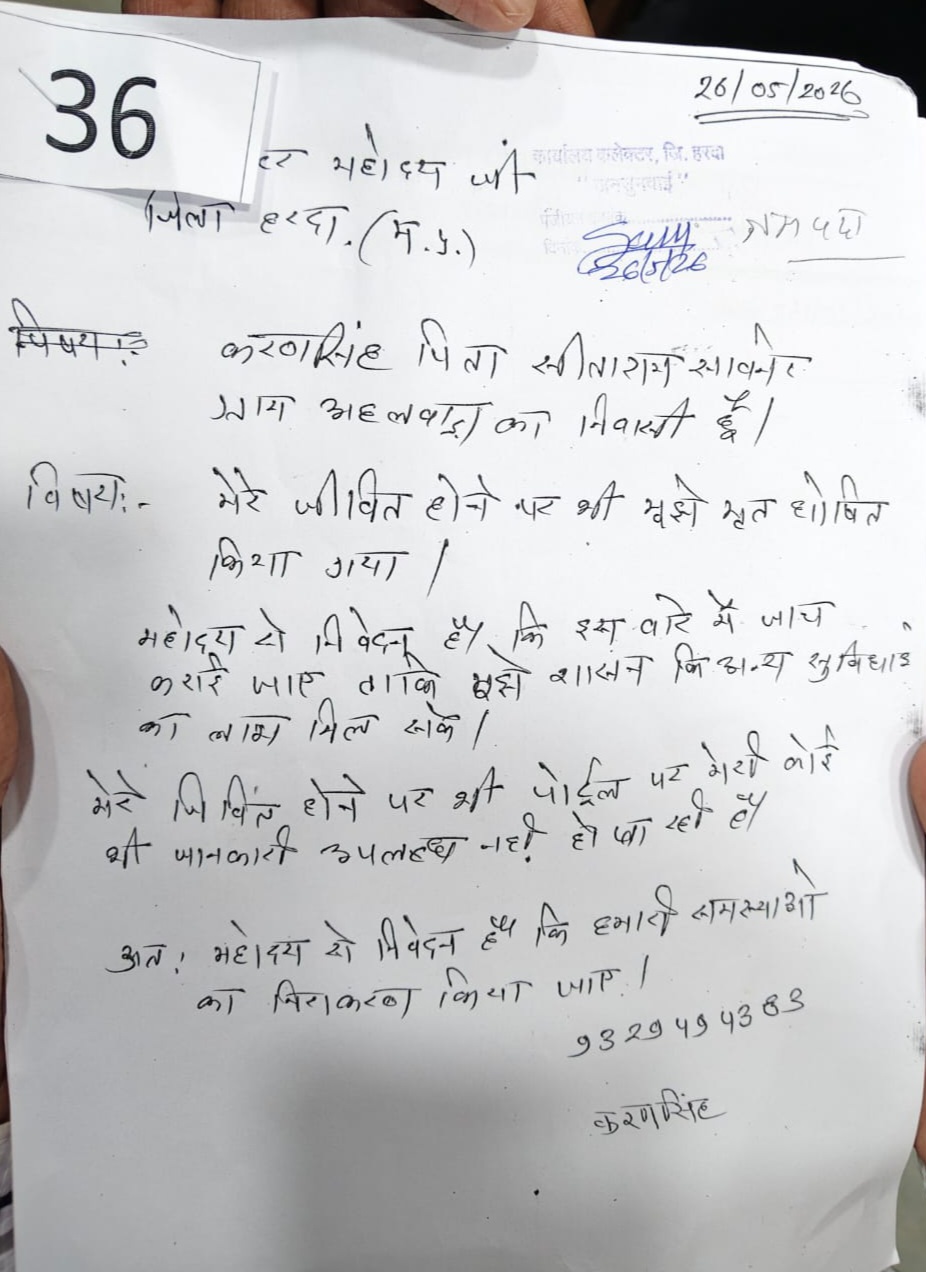 36
26/05/2026
टर महोदय जी
जिला हरदा. (म.प्र.)
कार्यालय कलेक्टर, जि. हरदा
"जनसुनवाई"
26/5/26
विषय :-
करणसिंह पिता सीताराम सावनेर
ग्राम अहलवाड़ा का निवासी हूँ।
विषय:- मेरे जीवित होने पर भी मुझे मृत घोषित
किया गया।
महोदय से निवेदन है कि इस बारे में जाच
कराई जाए ताकि मुझे शासन कि अन्य सुविधाओं
का लाभ मिल सके।
मेरे जिवित होने पर भी पोर्टल पर मेरी कोई
भी जानकारी उपलब्ध नही हो पा रही है
अत: महोदय से निवेदन है कि हमारी समस्याओ
का निराकरण किया जाए।
9329494383
करणसिंह